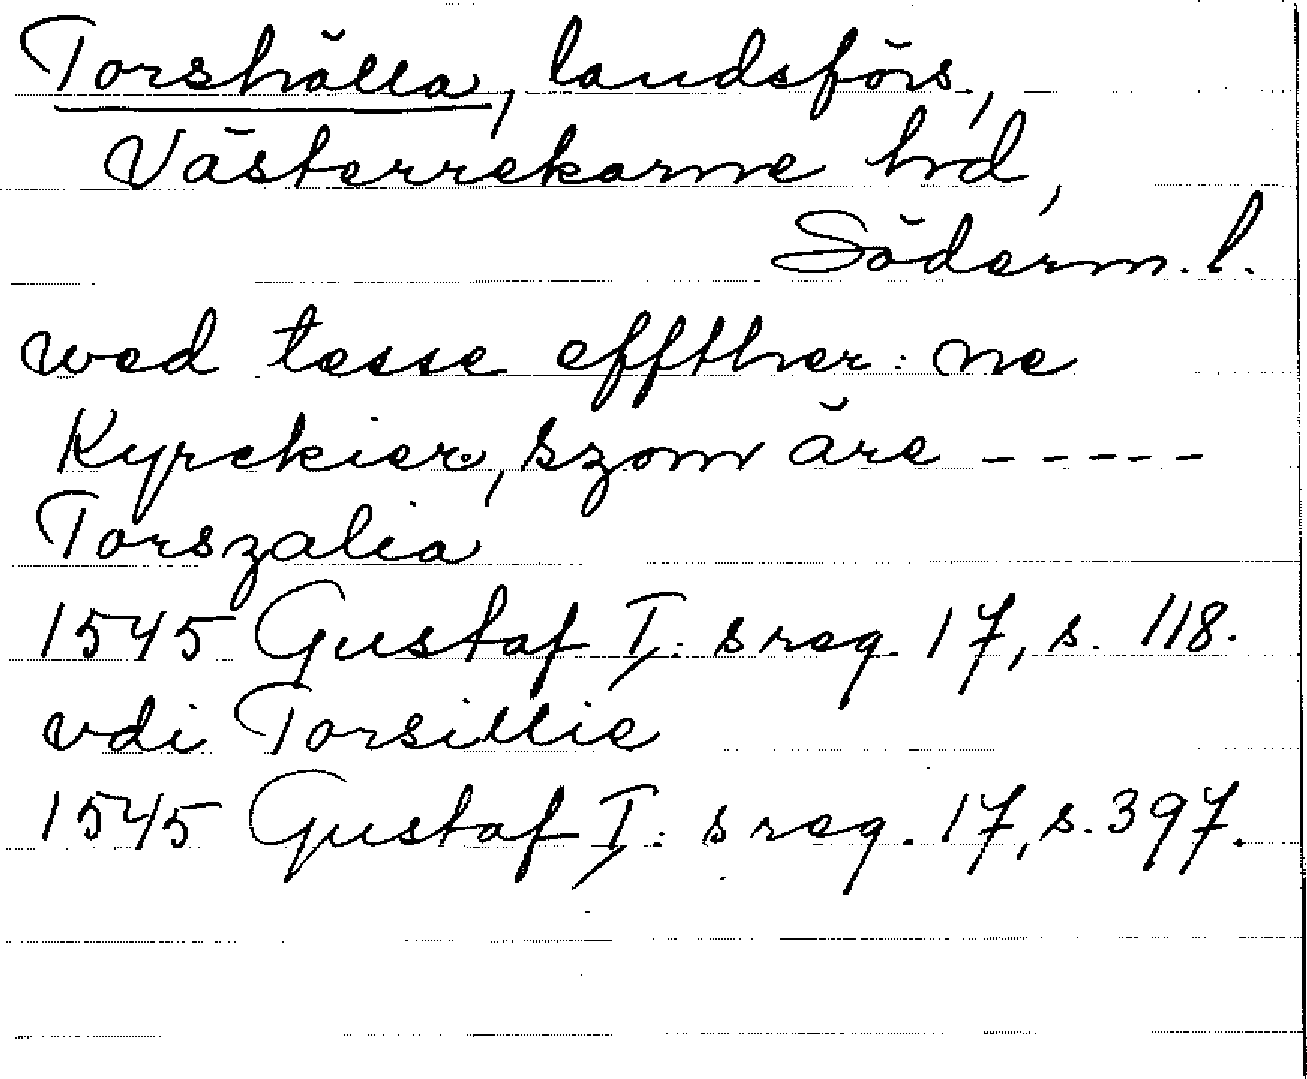 Torshälla, landsförs.,
Västerrekarne hd,
Söderm. l.
wed tesse effther: ne
Kyrckier, szom äre -----
Torszalia
1545 Gustaf I: s reg. 17, s. 118.
vdi Torsillie
1545 Gustaf I: s reg. 17, s. 397.